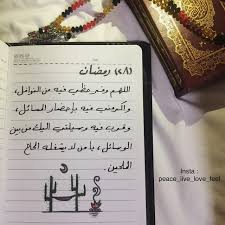 (٢٨) رمضان
اللهم وفر حظي فيه من النوافل،
وأكرمني فيه بإحضار المسائل،
وقرب فيه وسيلتي اليك من بين
الوسائل، يا من لا يشغله الحاح
الملحين.
Insta :
peace_live_love_feel